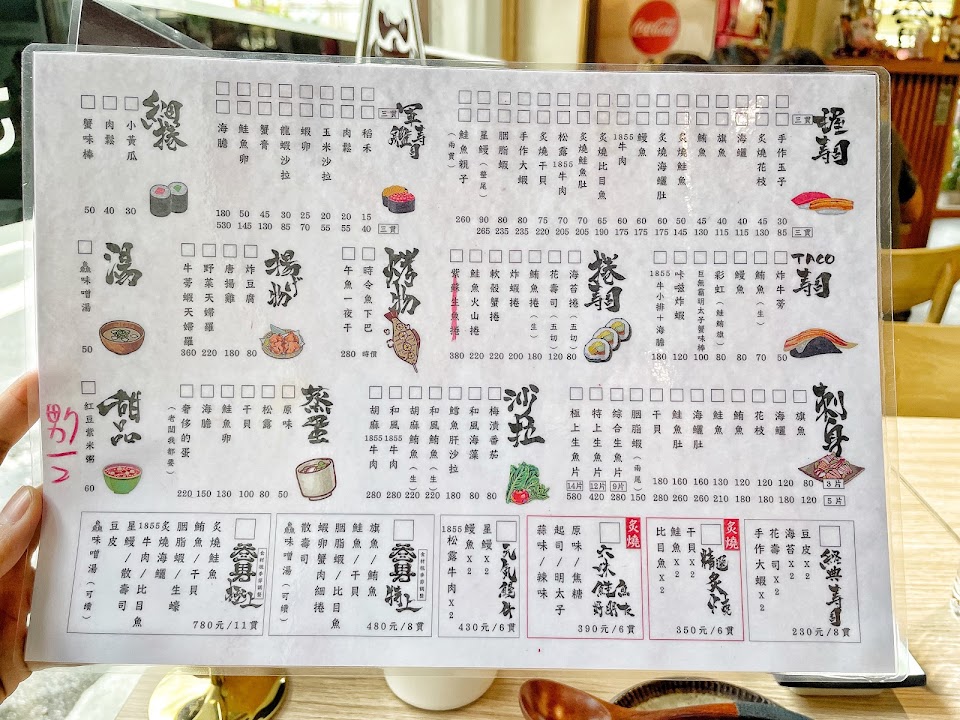 Coca-Cola
握壽司
三貫
手作玉子 30 85
炙燒花枝 45 130
海鱺 40 115
旗魚 40 115
鮪魚 45 130
炙燒鮭魚 50 145
炙燒海鱺肚 60 175
鰻魚 60 175
1855牛肉 60 175
炙燒比目魚 65 190
炙燒鮭魚肚 70 205
松露1855牛肉 70 205
炙燒干貝 75 220
手作大蝦 80 235
胭脂蝦 80 235
星鰻(整尾) 90 265
鮭魚親子(兩貫) 260
三貫
軍艦壽司
三貫
稻禾 15 40
肉鬆 20 55
玉米沙拉 20 55
蝦卵 25 70
龍蝦沙拉 30 85
蟹膏 45 130
鮭魚卵 50 145
海膽 180 530
三貫
細捲
小黃瓜 30
肉鬆 40
蟹味棒 50
TACO壽司
炸牛蒡 50
鮪魚(生) 70
鰻魚 80
彩虹(鮭鮪旗) 80
巨無霸明太子蟹味棒 100
咔滋炸蝦 120
1855牛小排+海膽 180
捲壽司
海苔捲(五切) 80
花壽司(五切) 120
鮪魚捲(生) 180
炸蝦捲 200
軟殼蟹捲 220
鮭魚火山捲 220
紫蘇生魚捲 380
烤物
時令魚下巴 時價
午魚一夜干 280
揚げ物
炸豆腐 80
唐揚雞 180
野菜天婦羅 220
牛蒡蝦天婦羅 360
湯
鱻味噌湯 50
刺身
旗魚 80
海鱺 120
花枝 120
鮪魚 120
鮭魚 120
海鱺肚 160
鮭魚肚 160
干貝 180
胭脂蝦(兩尾) 150
綜合生魚片 9片 220
特上生魚片 12片 420
極上生魚片 14片 580
3片
180 180 180 120 210 260 260 270
5片
沙拉
梅漬番茄 80
和風海藻 80
鱈魚肝沙拉 180
和風鮪魚(生) 220
胡麻鮪魚(生) 220
和風1855牛肉 280
胡麻1855牛肉 280
蒸蛋
原味 50
松露 80
干貝 100
鮭魚卵 130
海膽 150
奢侈的蛋(老闆我都要) 220
甜品
紅豆紫米粥 60
經典壽司
豆皮x2
海苔x2
花壽司x2
手作大蝦x2
230元/6貫
炙燒
精選炙燒
干貝x2
鮭魚x2
比目魚x2
350元/6貫
炙燒
六味鮭魚
原味/焦糖
起司/明太子
蒜味/辣味
390元/6貫
元氣
星鰻x2
鰻魚x2
1855松露牛肉x2
430元/6貫
特上
旗魚/鮪魚
鮭魚/干貝
胭脂蝦/比目魚
蝦卵蟹肉細捲
散壽司
鱻味噌湯(可續)
480元/8貫
極上
炙燒鮭魚
鮪魚/干貝
胭脂蝦/生蠔
炙燒海鱺
1855牛肉/比目魚
星鰻/散壽司
豆皮
鱻味噌湯(可續)
780元/11貫